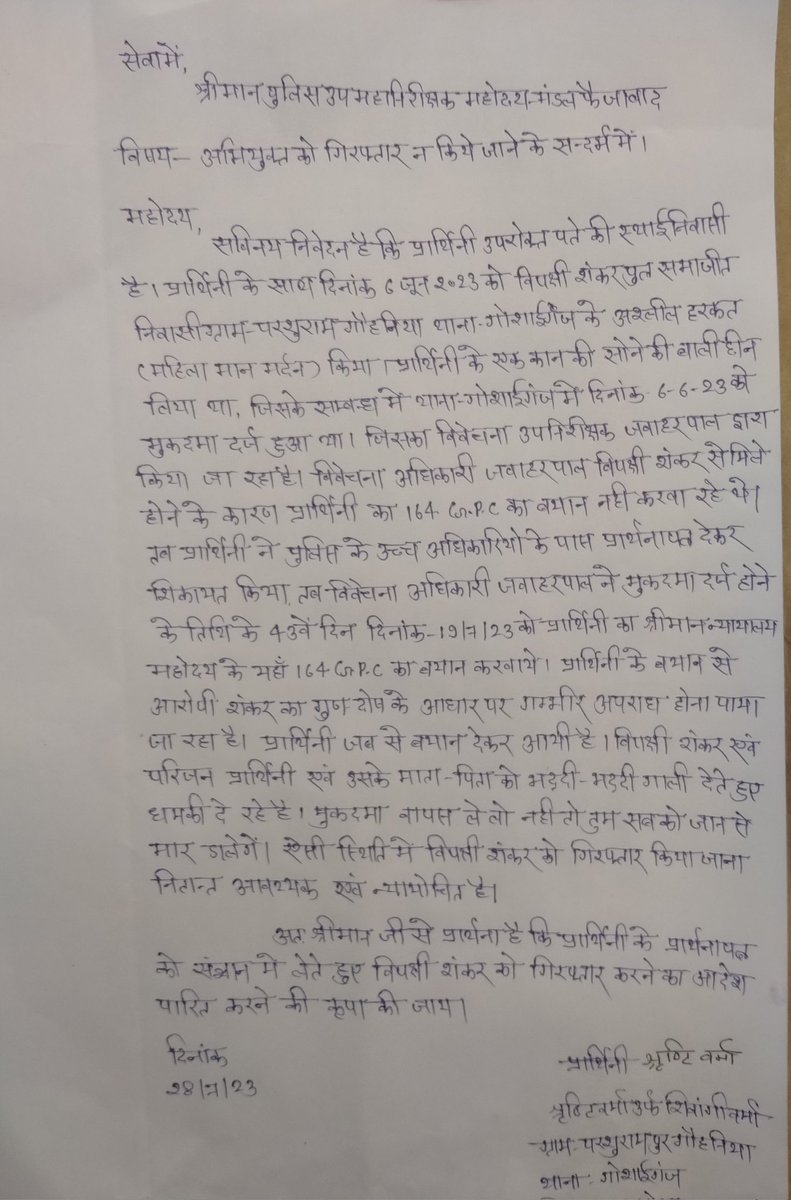 सेवामें,
श्रीमान पुलिस उपमहानिरीक्षक महोदय-मंडल फैजाबाद
विषय- अभियुक्त को गिरफ्तार न किये जाने के सन्दर्भ में।
महोदय,
सविनय निवेदन है कि प्रार्थिनी उपरोक्त पते की स्थाई निवासी
है। प्रार्थिनी के साथ दिनांक 6 जून 2023 को विपक्षी शंकर पुत्र समाजीत
निवासी ग्राम-परशुराम गौहनिया थाना-गोशाईगंज के अश्लील हरकत
(महिला मान मर्दन) किया। प्रार्थिनी के एक कान की सोने की बाली छीन
लिया था, जिसके सम्बन्ध में थाना-गोशाईगंज में दिनांक 6-6-23 को
मुकदमा दर्ज हुआ था। जिसका विवेचना उपनिरीक्षक जवाहरपाल द्वारा
किया जा रहा है। विवेचना अधिकारी जवाहरपाल विपक्षी शंकर से मिले
होने के कारण प्रार्थिनी का 164 Cr.P.C का बयान नही करवा रहे थे।
तब प्रार्थिनी ने पुलिस के उच्च अधिकारियो के पास प्रार्थनापत्र देकर
शिकायत किया, तब विवेचना अधिकारी जवाहरपाल ने मुकदमा दर्ज होने
के तिथि के 43वें दिन दिनांक-19/7/23 को प्रार्थिनी का श्रीमान न्यायालय
महोदय के यहाँ 164 Cr.P.C का बयान करवाये। प्रार्थिनी के बयान से
आरोपी शंकर का गुण दोष के आधार पर गम्भीर अपराध होना पाया
जा रहा है। प्रार्थिनी जब से बयान देकर आयी है। विपक्षी शंकर एवं
परिजन प्रार्थिनी एवं उसके माता-पिता को भद्दी-भद्दी गाली देते हुए
धमकी दे रहे है। मुकदमा वापस ले लो नही तो तुम सबको जान से
मार डालेगें। ऐसी स्थिति में विपक्षी शंकर को गिरफ्तार किया जाना
नितान्त आवश्यक एवं न्यायोचित है।
अतः श्रीमान जी से प्रार्थना है कि प्रार्थिनी के प्रार्थनापत्र
को संज्ञान मे लेते हुए विपक्षी शंकर को गिरफ्तार करने का आदेश
पारित करने की कृपा की जाय।
दिनांक
28/7/23
प्रार्थिनी सृष्टि वर्मा
सृष्टि वर्मा उर्फ शिवांगी वर्मा
ग्राम-परशुरामपुर गौहनिया
थाना-गोशाईगंज